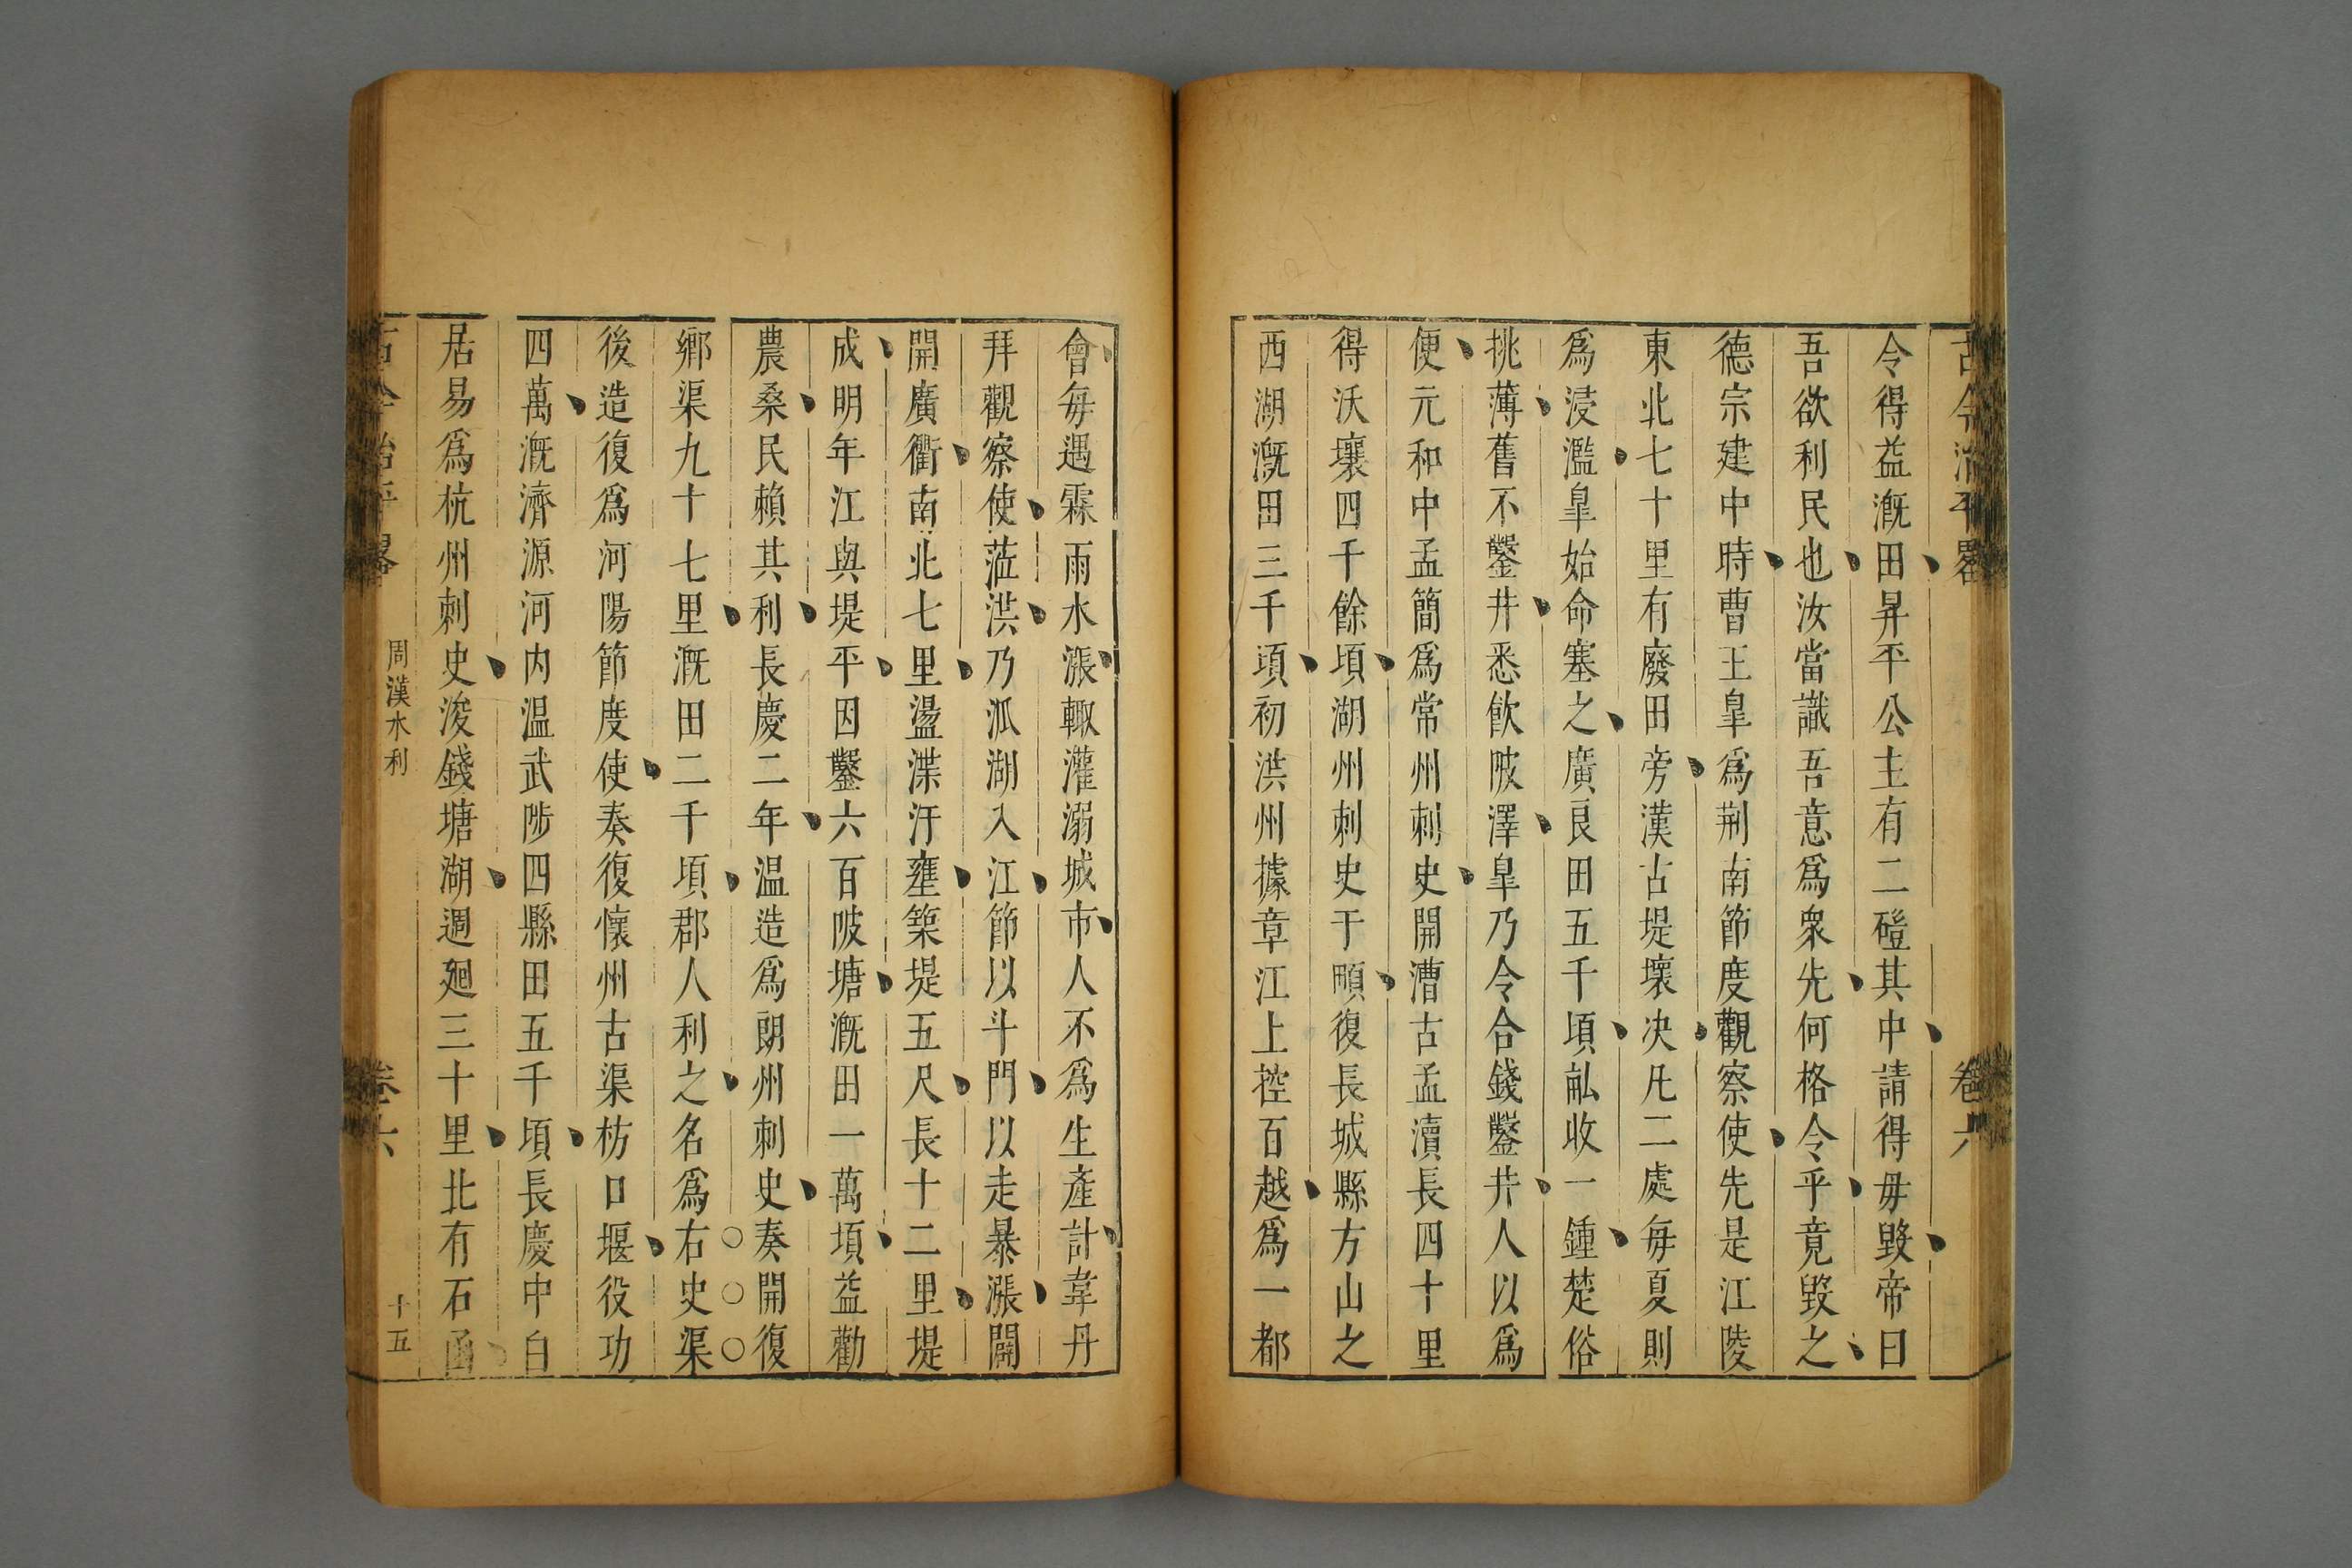 古今治平畧 卷六
令得益漑田昇平公主有二磑其中請得毋毀帝曰
吾欲利民也汝當識吾意爲衆先何格令乎竟毀之
德宗建中時曹王皐爲荆南節度觀察使先是江陵
東北七十里有廢田旁漢古堤壞决凡二處每夏則
爲浸濫皐始命塞之廣良田五千頃畝收一鍾楚俗
挑薄舊不鑿井悉飲陂澤皐乃令合錢鑿井人以爲
便元和中孟簡爲常州刺史開漕古孟瀆長四十里
得沃壤四千餘頃湖州刺史于頔復長城縣方山之
西湖漑田三千頃初洪州據章江上控百越爲一都
會每遇霖雨水漲輙灌溺城市人不爲生產計韋丹
拜觀察使蒞洪乃派湖入江節以斗門以走暴漲闢
開廣衢南北七里盪渫汙壅築堤五尺長十二里堤
成明年江與堤平因鑿六百陂塘漑田一萬頃益勸
農桑民賴其利長慶二年温造爲朗州刺史奏開復
鄉渠九十七里漑田二千頃郡人利之名爲右史渠
後造復爲河陽節度使奏復懷州古渠枋口堰役功
四萬漑濟源河内温武陟四縣田五千頃長慶中白
居易爲杭州刺史浚錢塘湖週廻三十里北有石函
古今治平畧 周漢水利 卷六 十五